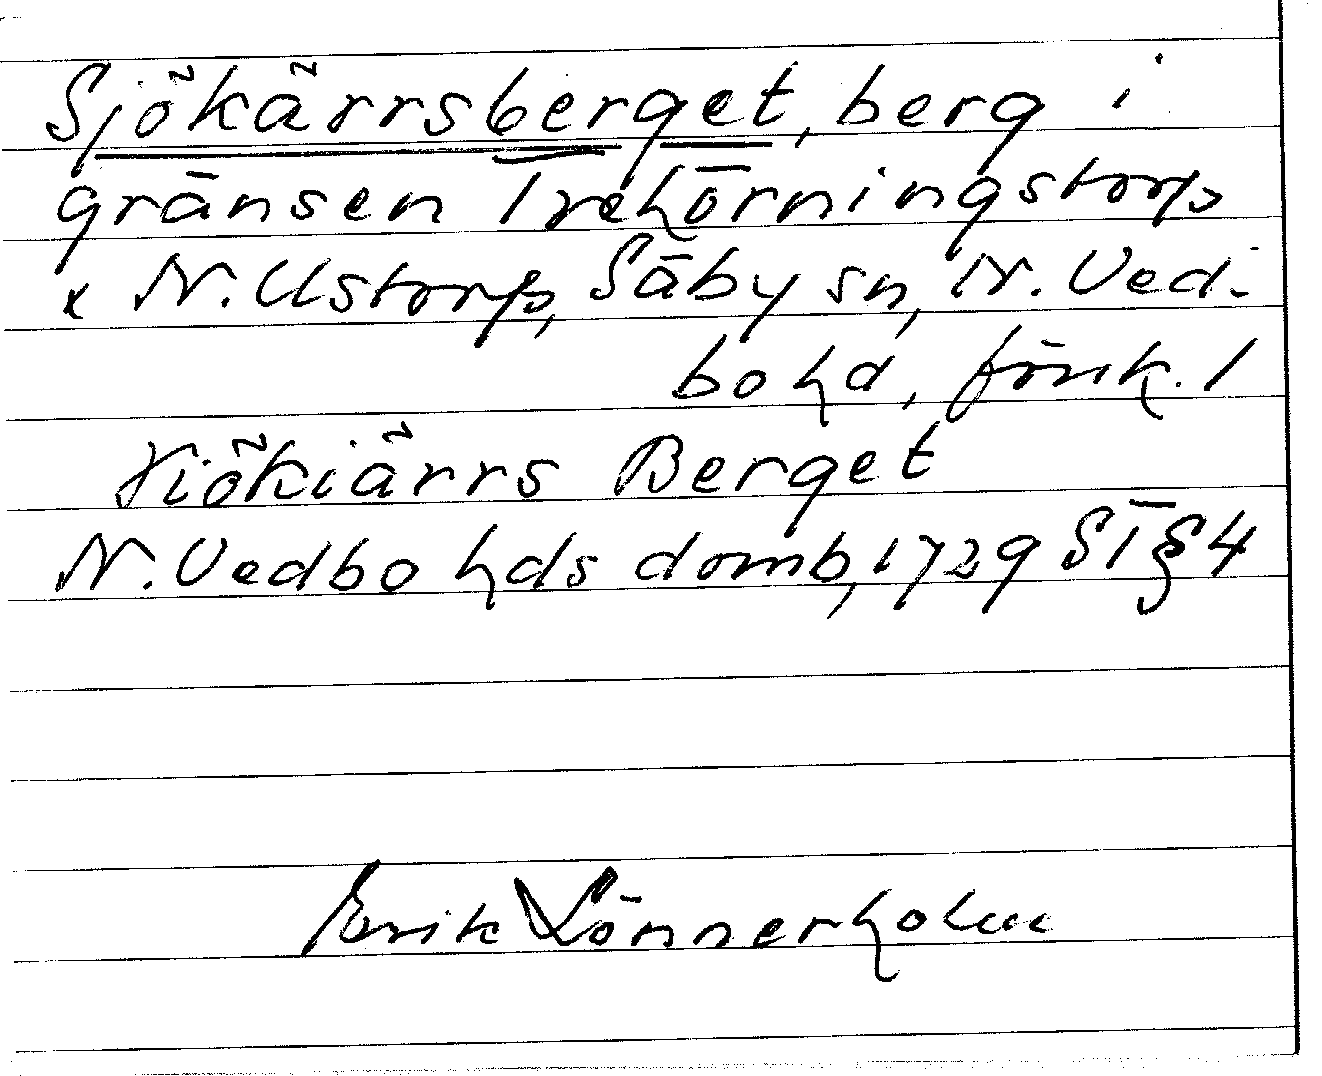 Sjökärrsberget, berg i
gränsen Trehörningstorp
x N. Ustorp, Säby sn, N. Ved-
bo hd,
Kiökiärrs Berget
N. Vedbo hds domb, 1729 ST § 4
Erik Lönnerholm